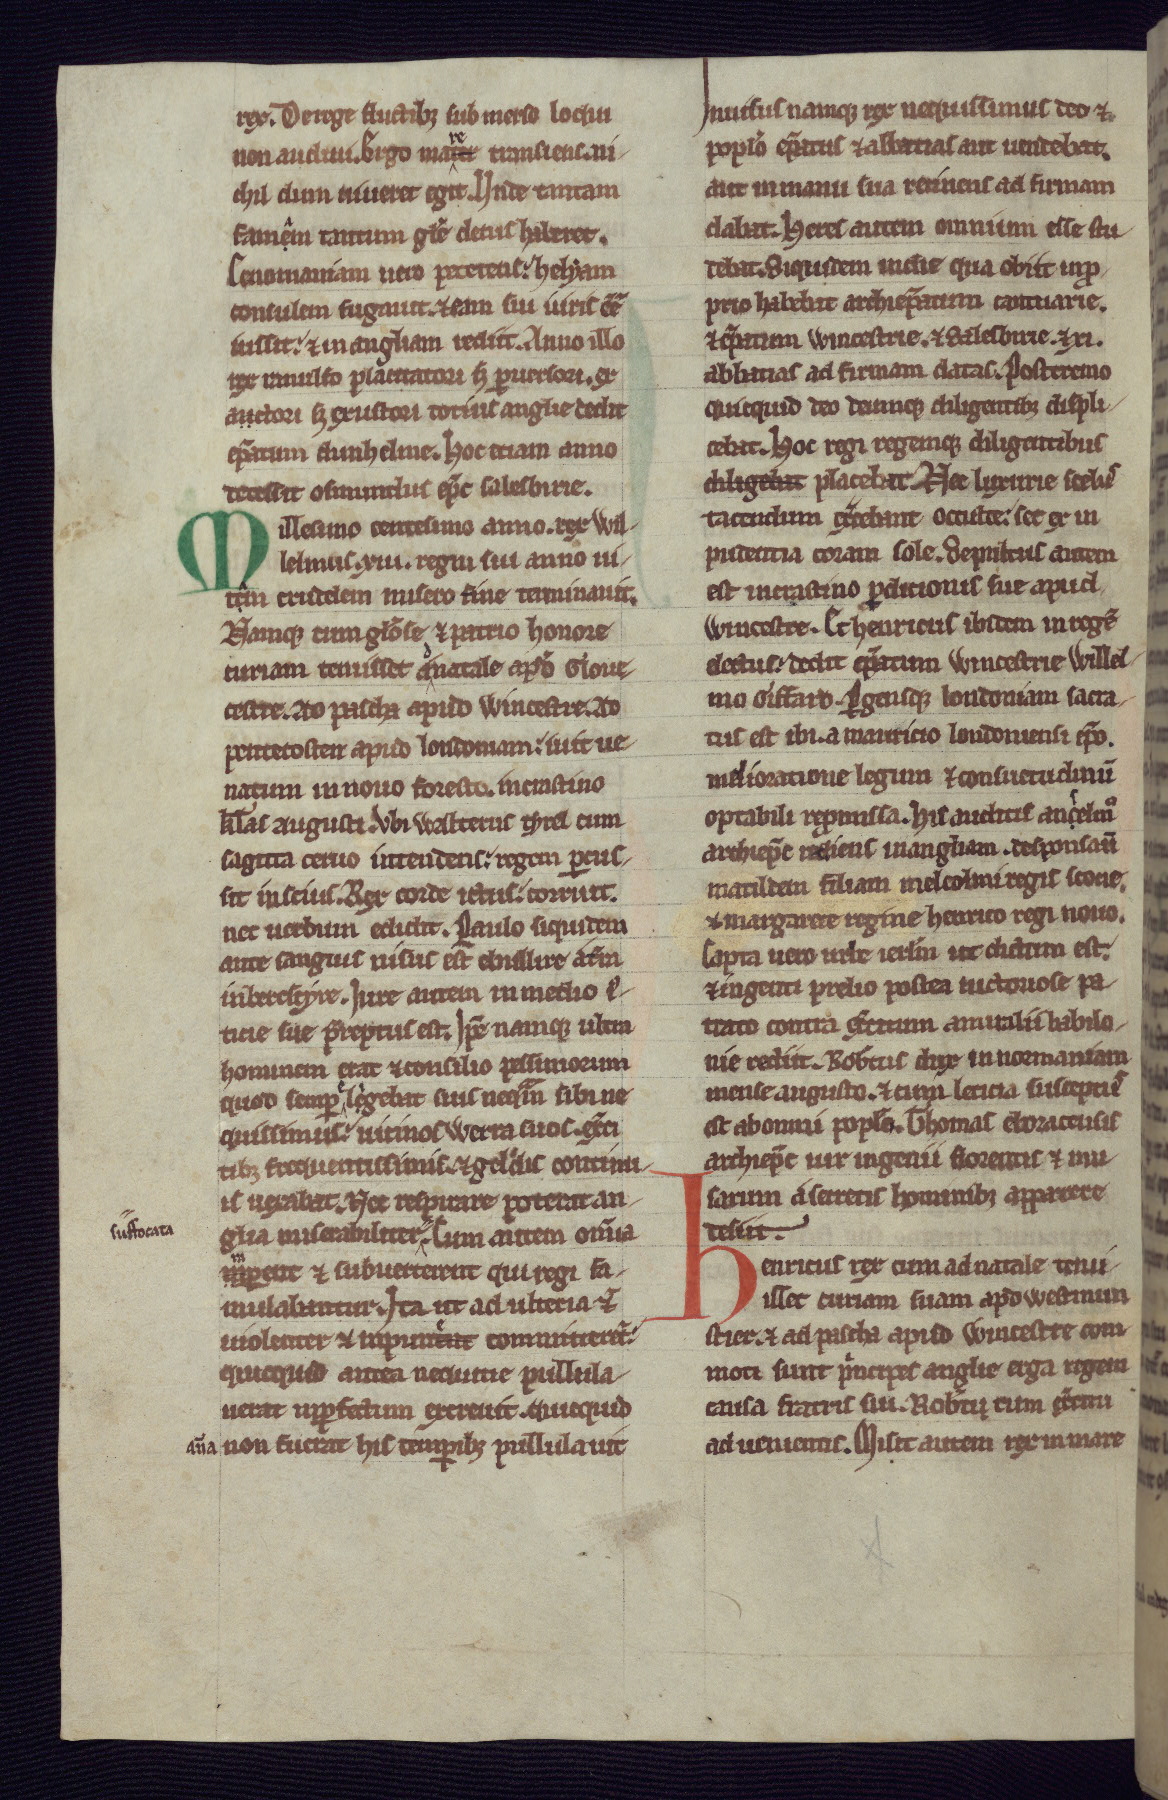 rex. De rege fluctibꝫ submerso loqui
non audiui. Ergo mare transiens. ni-
chil dum uiueret egit. Unde tantam
famam tantum glꝛ̄e decus haberet.
Cenomaniam uero petens: helyam
consulem fugauit. ⁊ eam sui iuris eē
iussit: ⁊ in angliam rediit. Anno illo
rex ranulfo placitatori sꝫ ꝑuersori. ex
actori sꝫ exustori totius anglie dedit
ep̄atum dunhelme. Hoc etiam anno
decessit osmundus ep̄c salesbirie.
Millesimo centesimo anno. rex Wil-
lelmus. xiii. regni sui anno ui-
tam crudelem misero fine terminauit.
Namqꝫ cum glōse ⁊ patrio honore
curiam tenuisset ad natale apud Gloue-
cestre. Ad pascha apud Wincestre. Ad
pentecosten apud londoniam: iuit ue-
natum in nouo foresto. in crastino
kl̄as augusti. Vbi Walterus tyrel cum
sagitta ceruo intendens: regem ꝑcus-
sit inscius. Rex corde ictus: corruit.
nec uerbum edidit. Paulo siquidem
ante sanguis uisus est ebullire a t̄ra
in berescyre. Iure autem in medio
ticie sue p̄reptus est. Ip̄e namqꝫ ultra
hominem erat ⁊ consilio pessimorum
quod semꝑ eligebat suis nequam sibi ne
quissimus: uicinos Werra suos. exerci
tibꝫ frequentissimis. ⁊ geldis continu-
is uexabat. Nec respirare poterat an-
suffocata glia miserabiliter. Cum autem om̄ia
raperent ⁊ subuerterent qui regi fa-
mulabantur. Ita ut adulteria ⁊
uiolenter ⁊ impune committerent:
quicquid antea nequitie pullula-
uerat in ꝑfectum excreuit. quicquid
antea non fuerat his temporibꝫ pullulauit
Inuisus namqꝫ rex nequissimus deo ⁊
populo ep̄atus ⁊ abbatias aut uendebat.
aut in manu sua retinens ad firmam
dabat. Heres autem omnium esse stu
debat. Siquidem in die qua obiit in pro
prio habebat archiep̄atum cantuarie.
⁊ ep̄atum Wincestrie. ⁊ Salesbirie. ⁊ xi.
abbatias ad firmam datas. Postremo
quicquid deo deumqꝫ diligentibꝫ displi-
cebat. Hoc regi regemqꝫ diligentibus
diligebat placebat. Nec luxurie scelus
tacendum exercebant occulte: set ex in
pudentia coram sole. Sepultus autem
est in crastino ꝑditionis sue apud
Wincestre. Et henricus ibidem in regē
electus: dedit ep̄atum Wincestrie Willel-
mo Giffard. Pergensqꝫ londoniam sacra-
tus est ibi. a mauricio londoniensi ep̄o.
melioratione legum ⁊ consuetudinū
optabili repromissa. His auditis anselmus
archiep̄c rediens in angliam. desponsauit
matildem filiam melcolmi regis scocie.
⁊ margarete regine henrico regi nouo.
Capta uero urbe ierl̄m ut dictum est:
⁊ ingenti prelio postea uictoriose pa-
trato contra exercitum amiralii babilo-
nie rediit. Robertus dux in normanniam
mense augusto. ⁊ cum leticia susceptus
est ab omni populo. Thomas eboracensis
archiep̄c uir ingenii florentis ⁊ mu-
sarum a secretis hominibꝫ apparere
desiit.
Henricus rex cum ad natale tenu-
isset curiam suam apud Westmun
stier. ⁊ ad pascha apud Wincestre com
moti sunt principes anglie erga regem
causa fratris sui. Roberti cum exercitu
aduenientis. Misit autem rex in mare